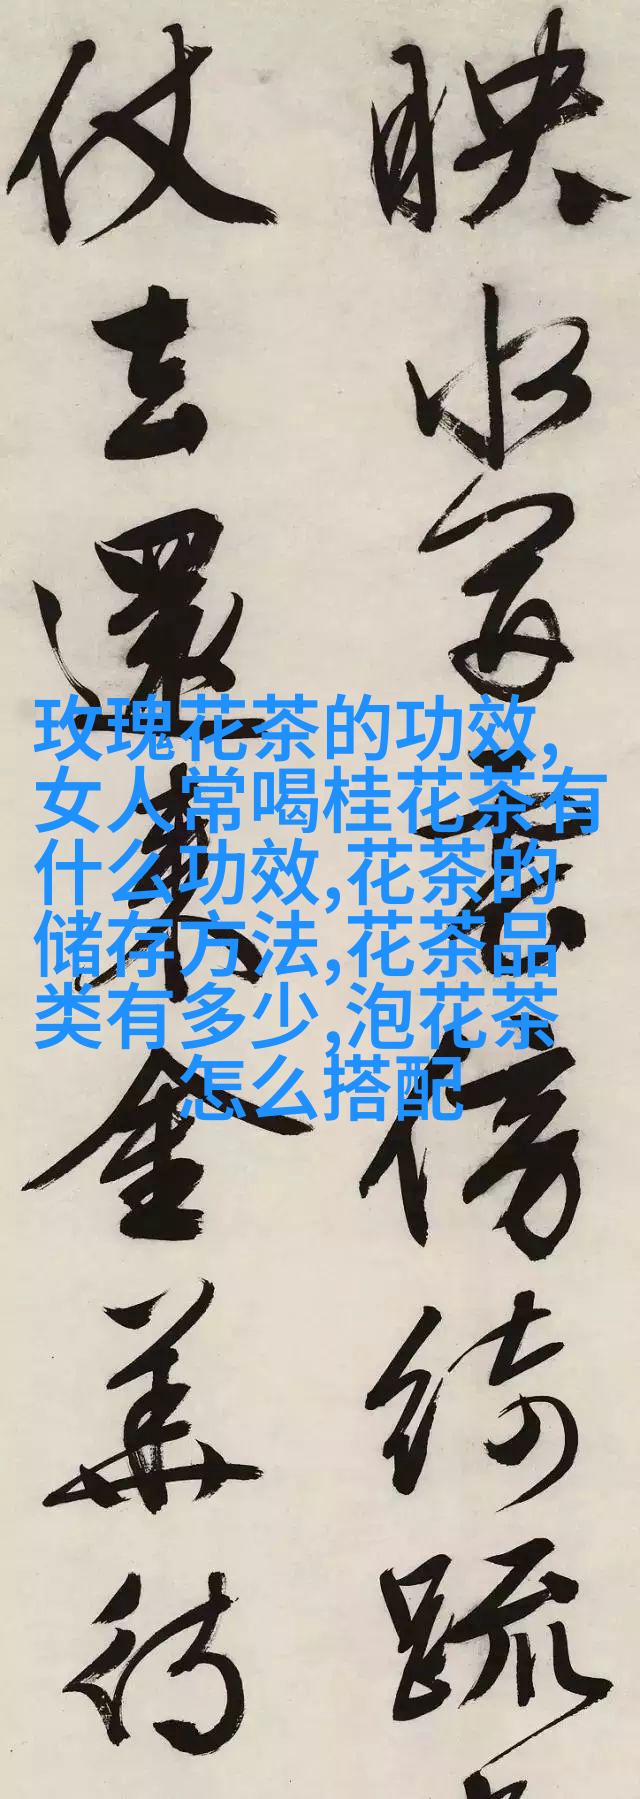 映水傍綺疏
仗去還來金華
玫瑰花茶的功效,
女人常喝桂花茶有
什么功效,花茶的
储存方法,花茶品
类有多少,泡花茶
怎么搭配